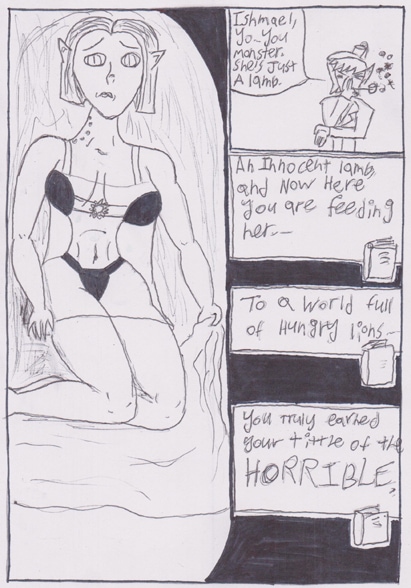 Ishmael,
Yo-You
monster.
She's Just
A lamb.
An Innocent lamb
and Now Here
you are feeding
her--
To a World full
of Hungry lions--
You truly earned
your tittle of the
HORRIBLE.